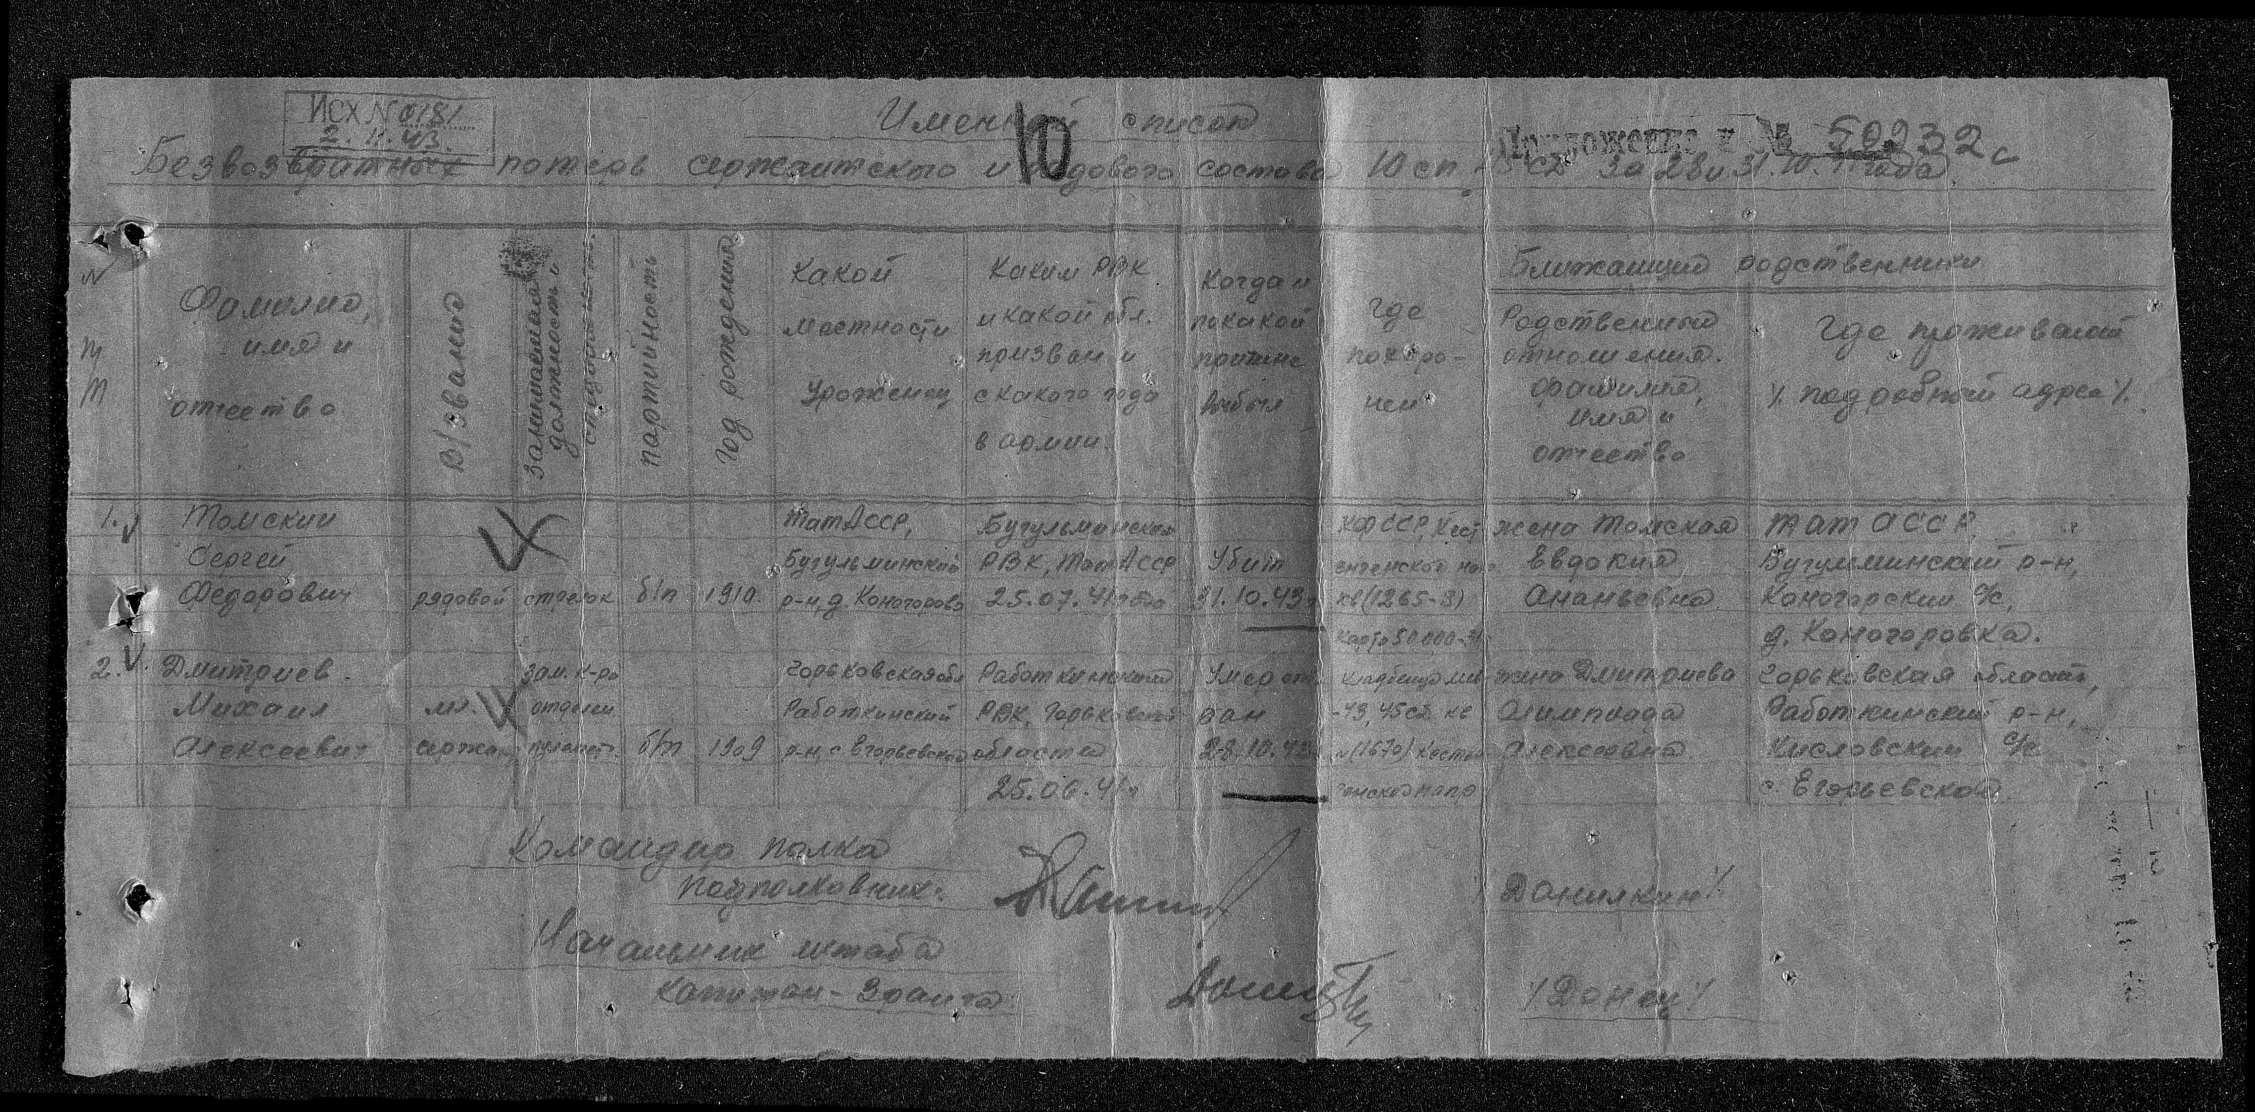 Исх N 0181
2.11.43.
Именной список
Приложение к № 50932с
Безвозвратных потерь сержантского и рядового состава 10 сп СД за 28 и 31.10. года
10
N
Фамилия,
имя и
отчество
В/звание
занимаемая
должность и
партийность
год рождения
Какой
местности
Уроженец
Каким РВК
и какой обл.
призван и
с какого года
в армии.
Когда и
по какой
причине
выбыл
Где
похоро-
нен
Ближайшие родственники
Родственные
отношения.
фамилия,
имя и
отчество
Где проживает
/. подробный адрес /.
1. Томский
Сергей
Федорович
рядовой
стрелок
б/п
1910.
ТатАССР,
Бугульминский
р-н, д. Коногорово
Бугульминский
РВК, ТатАССР
25.07.41 года
Убит
31.10.43г
кв(1265-В)
Карта 50.000-
жена Томская
Евдокия
Ананьевна
ТатАССР,
Бугульминский р-н,
Коногорский с/с,
д. Коногоровка.
2. Дмитриев.
Михаил
Алексеевич
мл.
сержан
зам. к-ра
отделен
пулемет.
б/п
1909
Горьковская обл
Работкинский
р-н, с. Егорьевское
Работкинский
РВК, Горьковской
области
25.06.41г
Умер от
ран
28.10.43
жена Дмитриева
Олимпиада
Алексеевна
Горьковская область,
Работкинский р-н,
Кисловский с/с
с. Егорьевское
Командир полка
подполковник:
/ Данилкин /.
Начальник штаба
капитан-
/ Донец /